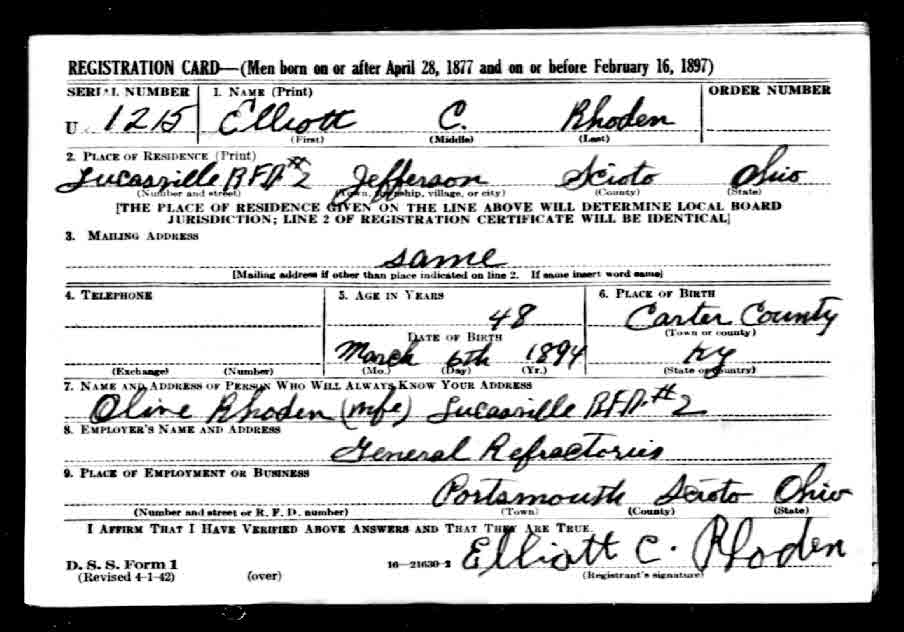 REGISTRATION CARD—(Men born on or after April 28, 1877 and on or before February 16, 1897)
SERIAL NUMBER 1. NAME (Print) ORDER NUMBER
U 1215 Elliott C. Rhoden
(First) (Middle) (Last)
2. PLACE OF RESIDENCE (Print)
Lucasville R.F.D. #2 Jefferson Scioto Ohio
(Number and street) (Town, township, village, or city) (County) (State)
[THE PLACE OF RESIDENCE GIVEN ON THE LINE ABOVE WILL DETERMINE LOCAL BOARD
JURISDICTION; LINE 2 OF REGISTRATION CERTIFICATE WILL BE IDENTICAL]
3. MAILING ADDRESS
same
[Mailing address if other than place indicated on line 2. If same insert word same]
4. TELEPHONE 5. AGE IN YEARS 6. PLACE OF BIRTH
48 Carter County
DATE OF BIRTH (Town or county)
March 6th 1894 Ky
(Exchange) (Number) (Mo.) (Day) (Yr.) (State or country)
7. NAME AND ADDRESS OF PERSON WHO WILL ALWAYS KNOW YOUR ADDRESS
Oline Rhoden (wife) Lucasville R.F.D. #2
8. EMPLOYER'S NAME AND ADDRESS
General Refractories
9. PLACE OF EMPLOYMENT OR BUSINESS
Portsmouth Scioto Ohio
(Number and street or R. F. D. number) (Town) (County) (State)
I AFFIRM THAT I HAVE VERIFIED ABOVE ANSWERS AND THAT THEY ARE TRUE.
D. S. S. Form 1
(Revised 4-1-42) (over) 16—21630-2 Elliott C. Rhoden
(Registrant's signature)